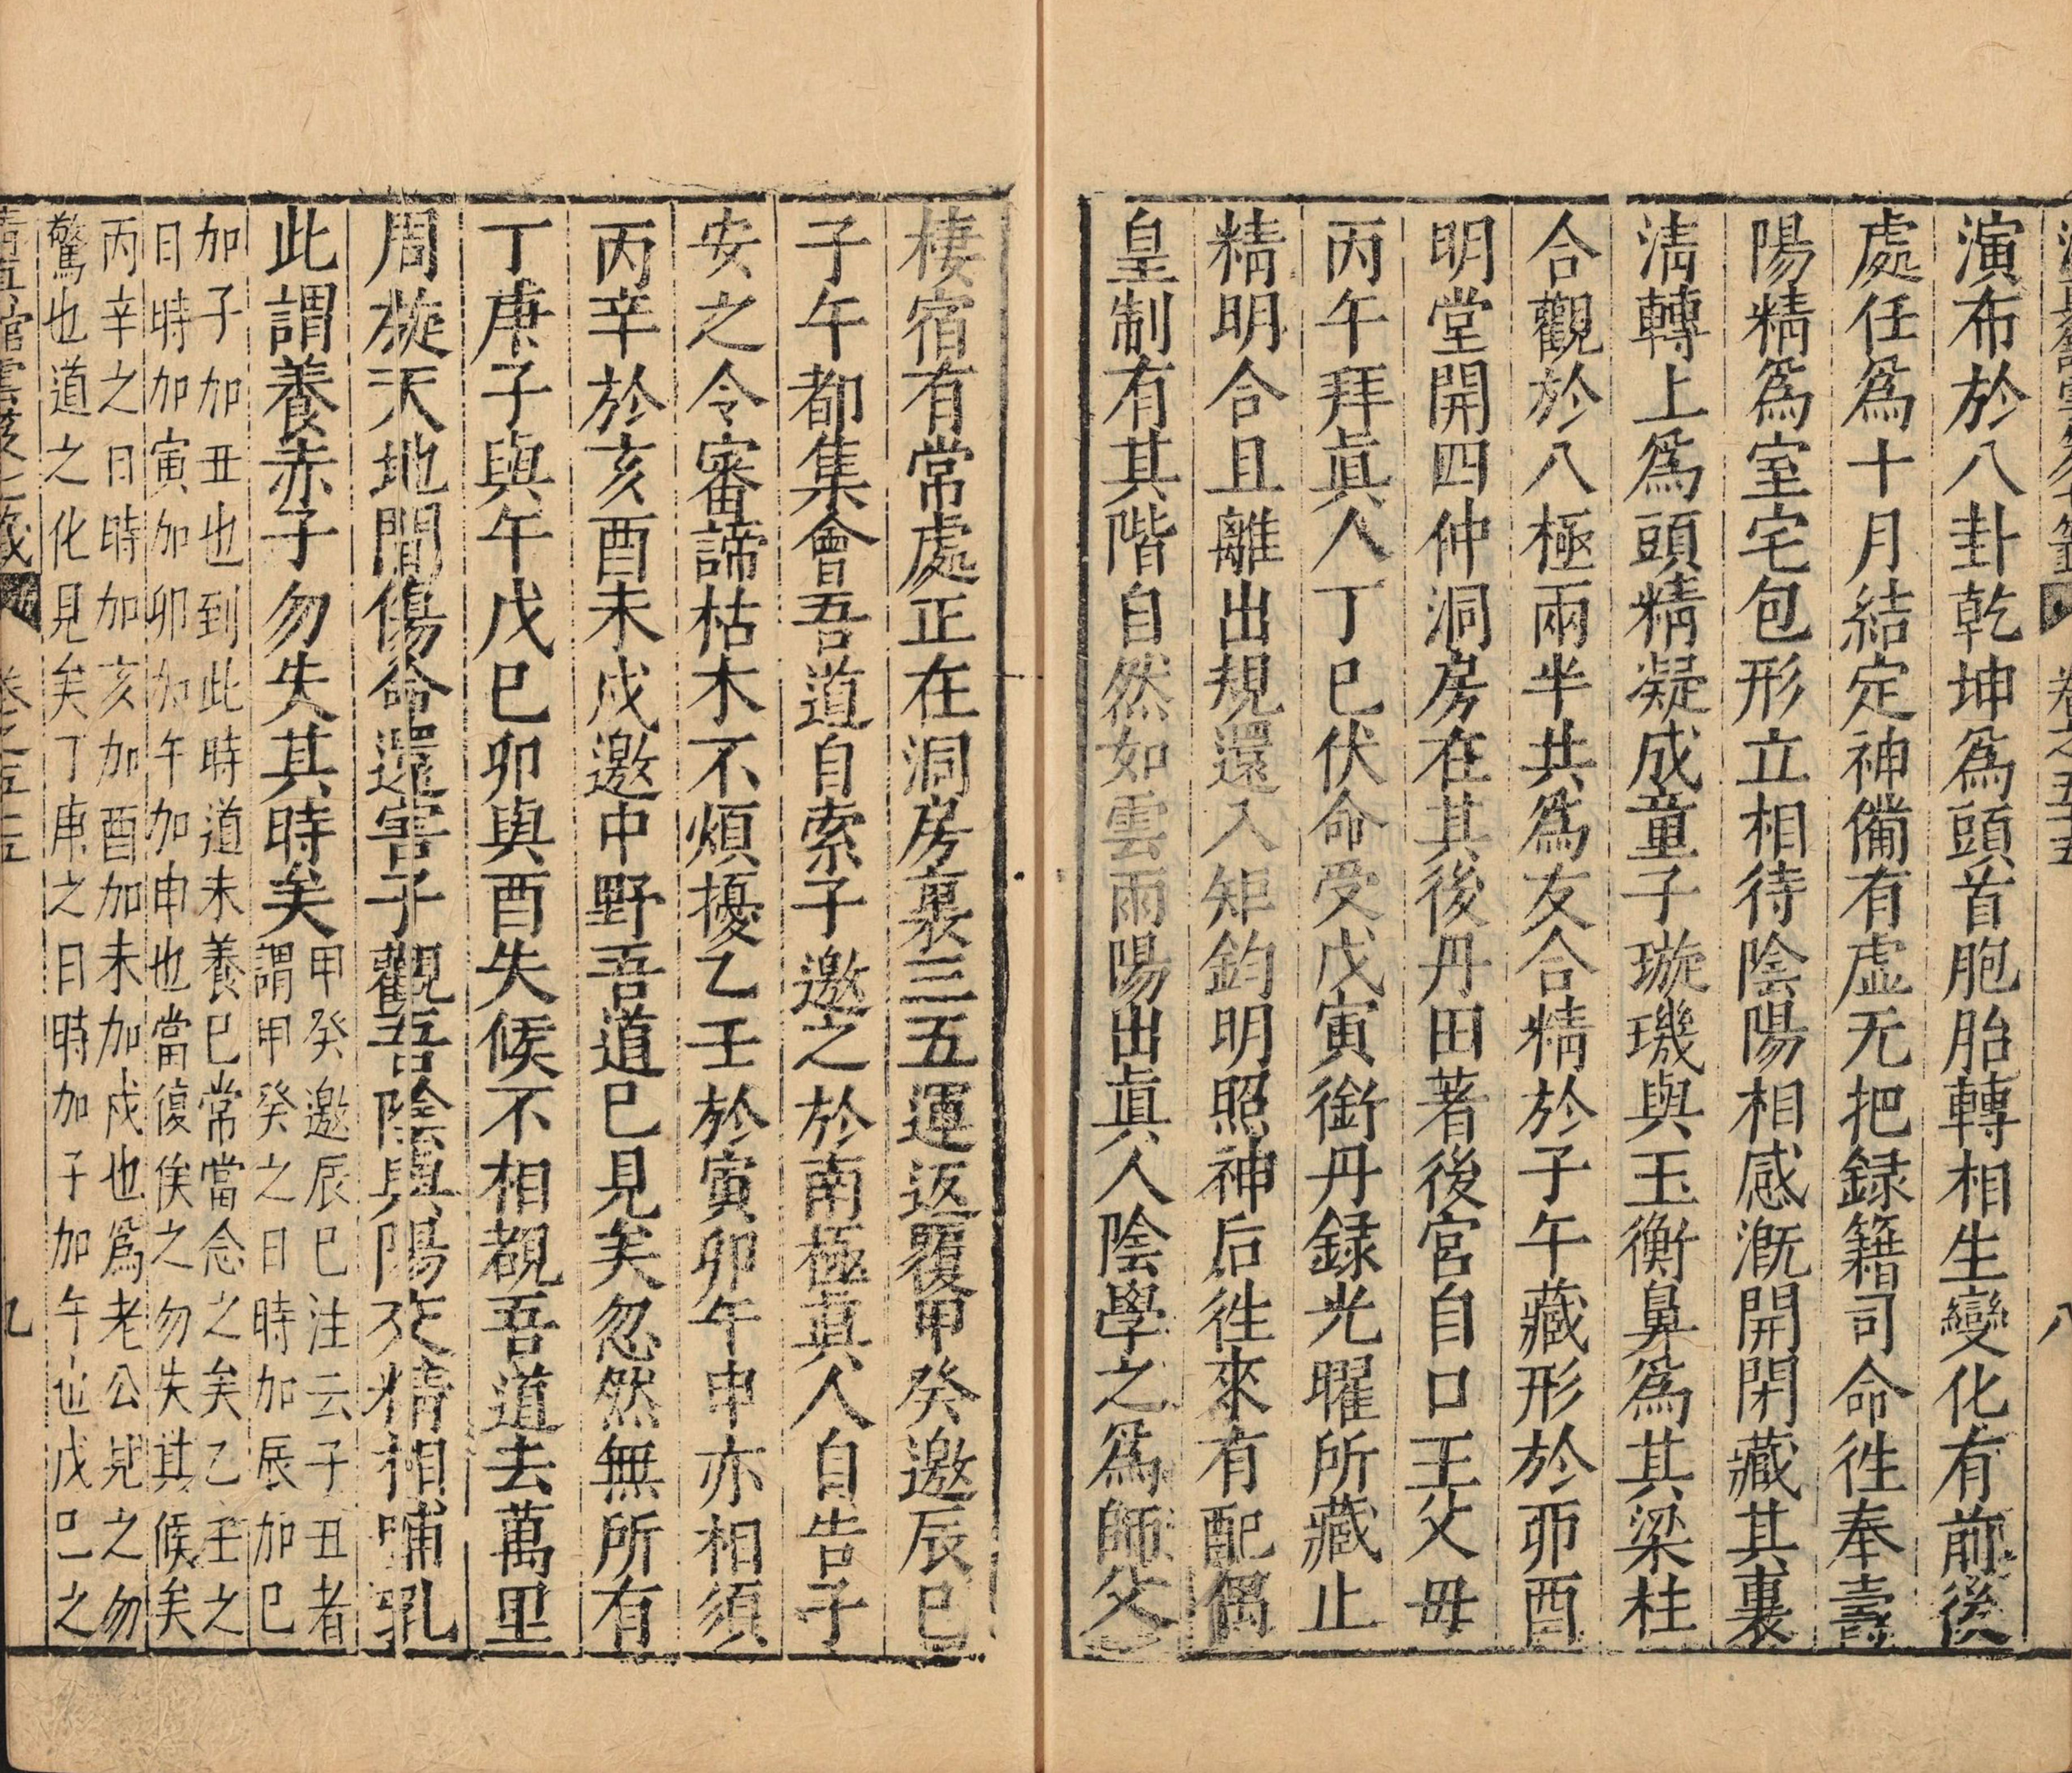 演布於八卦乾坤爲頭首胞胎轉相生變化有前後
處任爲十月結定神備有虛无把録籍司命徃奉壽
陽精爲室宅包形立相待陰陽相感漑開閉藏其裏
淸轉上爲頭精凝成童子璇璣與玉衡鼻爲其梁柱
合觀於八極兩半共爲友合精於子午藏形於卯酉
明堂開四仲洞房在其後丹田著後宮自口王父母
丙午拜眞人丁巳伏命受戊寅銜丹録光曜所藏止
精明合且離出規還入矩鈞明照神后徃來有配偶
皇制有其階自然如雲雨陽出眞人陰學之爲師父
棲宿有常處正在洞房裏三五運返覆甲癸邀辰巳
子午都集會吾道自索子邀之於南極眞人自告子
安之令審諦枯木不煩擾乙壬於寅卯午申亦相須
丙辛於亥酉未戌邀中野吾道已見矣忽然無所有
丁庚子與午戊巳卯與酉失候不相覩吾道去萬里
周旋天地間傷命還害子觀吾陰與陽交精相哺乳
此謂養赤子勿失其時矣甲癸邀辰巳注云子丑者
謂甲癸之日時加辰加巳
加子加丑也到此時道未養巳常當念之矣乙壬之
日時加寅加卯加午加申也當復俟之勿失其候矣
丙辛之日時加亥加酉加未加戌也爲老公見之勿
驚也道之化見矣丁庚之日時加子加午也戊巳之